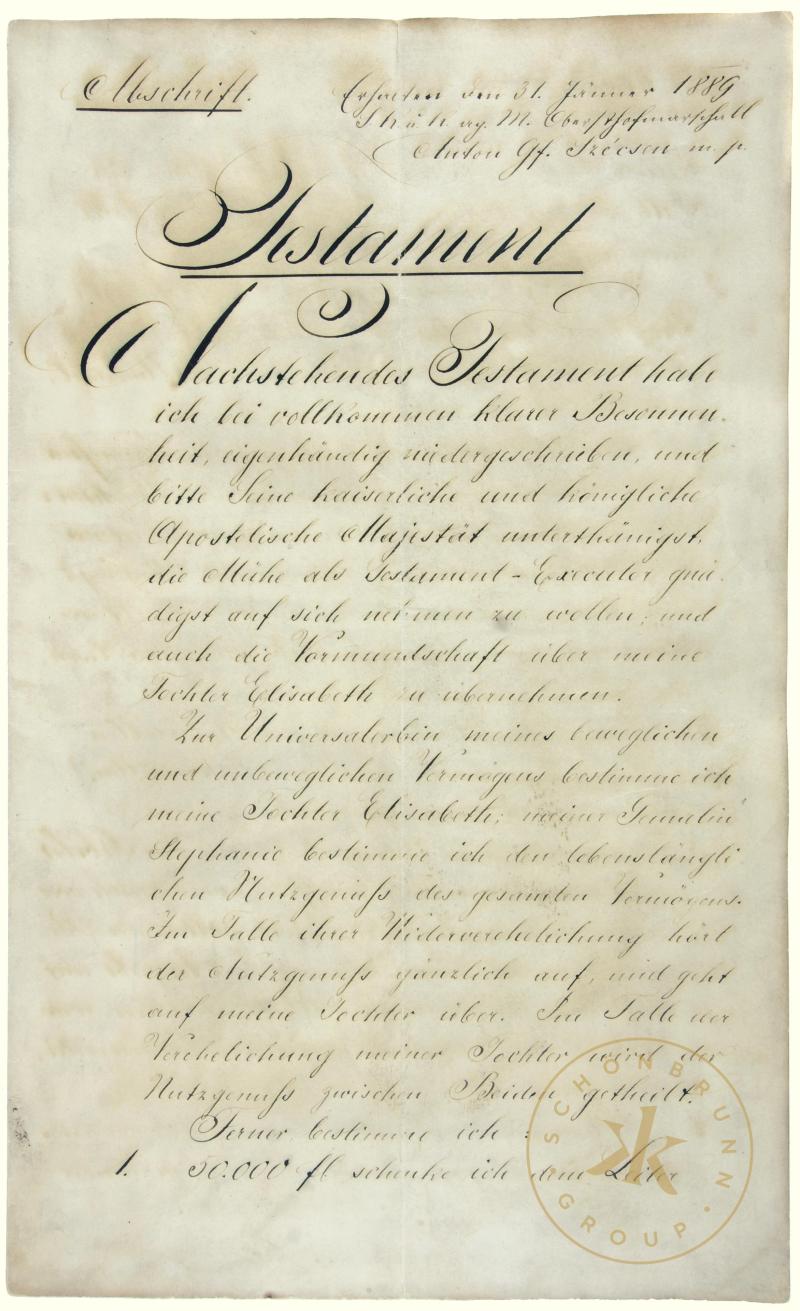 Abschrift.
Erhalten den 31. Jänner 1889
S. k. u. k. ap. M. Obersthofmarschall
Anton Gf. Szécsen m. p.
Testament
Nachstehendes Testament habe
ich bei vollkommen klarer Besonnen-
heit, eigenhändig niedergeschrieben, und
bitte Seine kaiserliche und königliche
Apostolische Majestät unterthänigst,
die Mühe als Testament-Executor gnä-
digst auf sich nehmen zu wollen; und
auch die Vormundschaft über meine
Tochter Elisabeth zu übernehmen.
Zur Universalerbin meines beweglichen
und unbeweglichen Vermögens bestimme ich
meine Tochter Elisabeth; meiner Gemalin
Stephanie bestimme ich den lebenslängli
chen Nutzgenuß des gesamten Vermögens.
Im Falle ihrer Widerverehelichung hört
der Nutzgenuß gänzlich auf, und geht
auf meine Tochter über. Im Falle der
Verehelichung meiner Tochter wird der
Nutzgenuß zwischen Beiden getheilt.
Ferner bestimme ich:
1. 50.000 fl schenke ich dem Leiter
SCHÖNBRUNN
GROUP